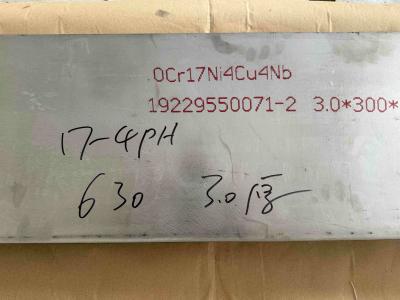 0Cr17Ni4Cu4Nb
19229550071-2 3.0*300*
17-4PH
630 3.0厚